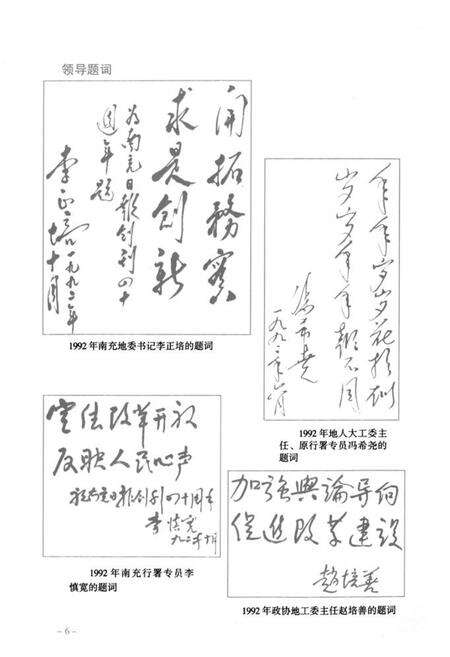 领导题词
开拓务实
求是创新
为南充日报创刊四十
周年题
李正培一九九二年
十月
1992年南充地委书记李正培的题词
年年岁岁花相似
岁岁年年报不同
冯希尧
一九九二年六月
1992年地人大工委主
任、原行署专员冯希尧的
题词
宣传改革开放
反映人民心声
祝南充日报创刊四十周年
李慎宽
九二年十月
1992年南充行署专员李
慎宽的题词
加强舆论导向
促进改革建设
赵培善
1992年政协地工委主任赵培善的题词
-6-